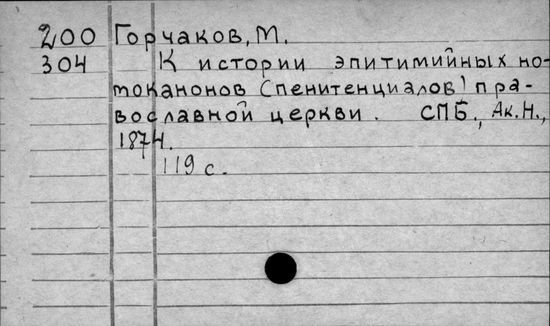 200 Горчаков, М.
304 К истории эпитимийных но-
моканонов (пенитенциалов) пра-
вославной церкви. СПБ., Ак.Н.,
1874.
119 с.